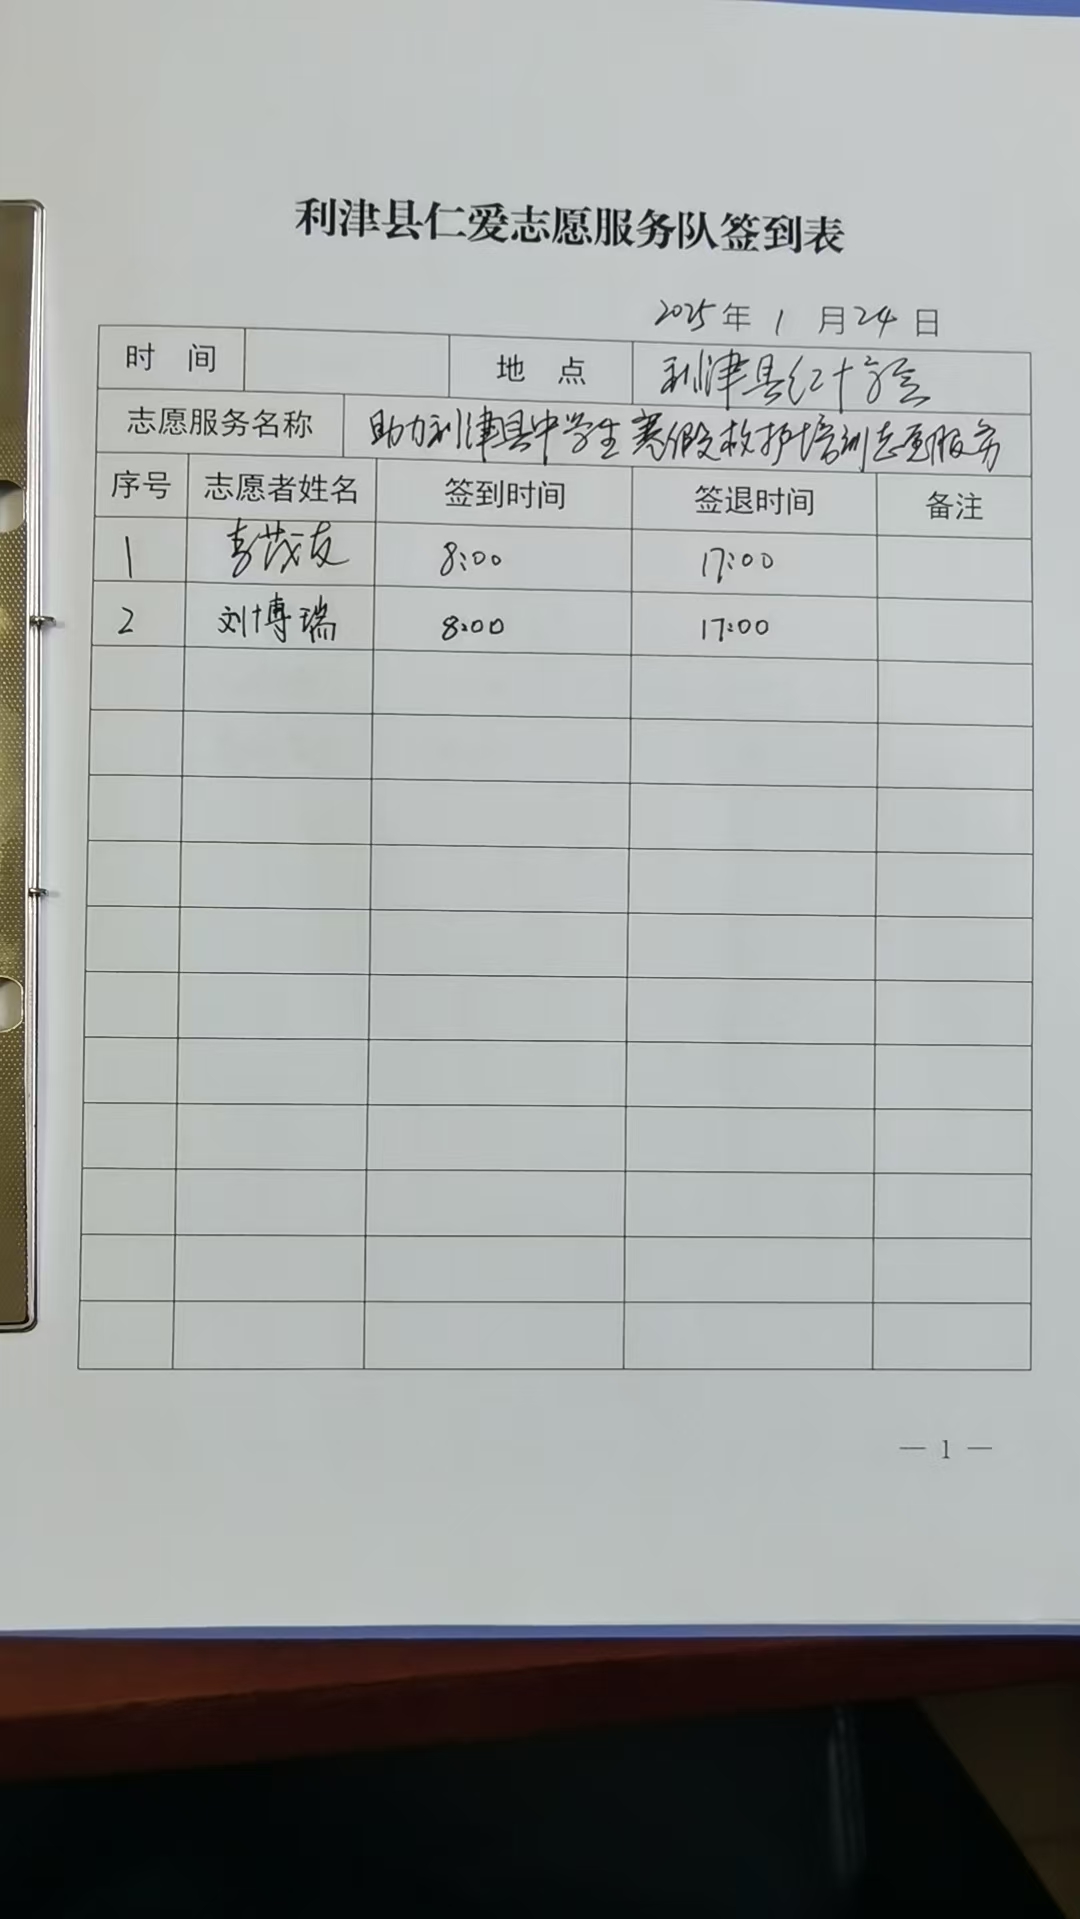 利津县仁爱志愿服务队签到表
2025年 1 月 24 日
时 间 地 点 利津县红十字会
志愿服务名称 助力利津县中学生寒假救护培训志愿服务
序号 志愿者姓名 签到时间 签退时间 备注
1 李茂友 8:00 17:00
2 刘博瑞 8:00 17:00
— 1 —